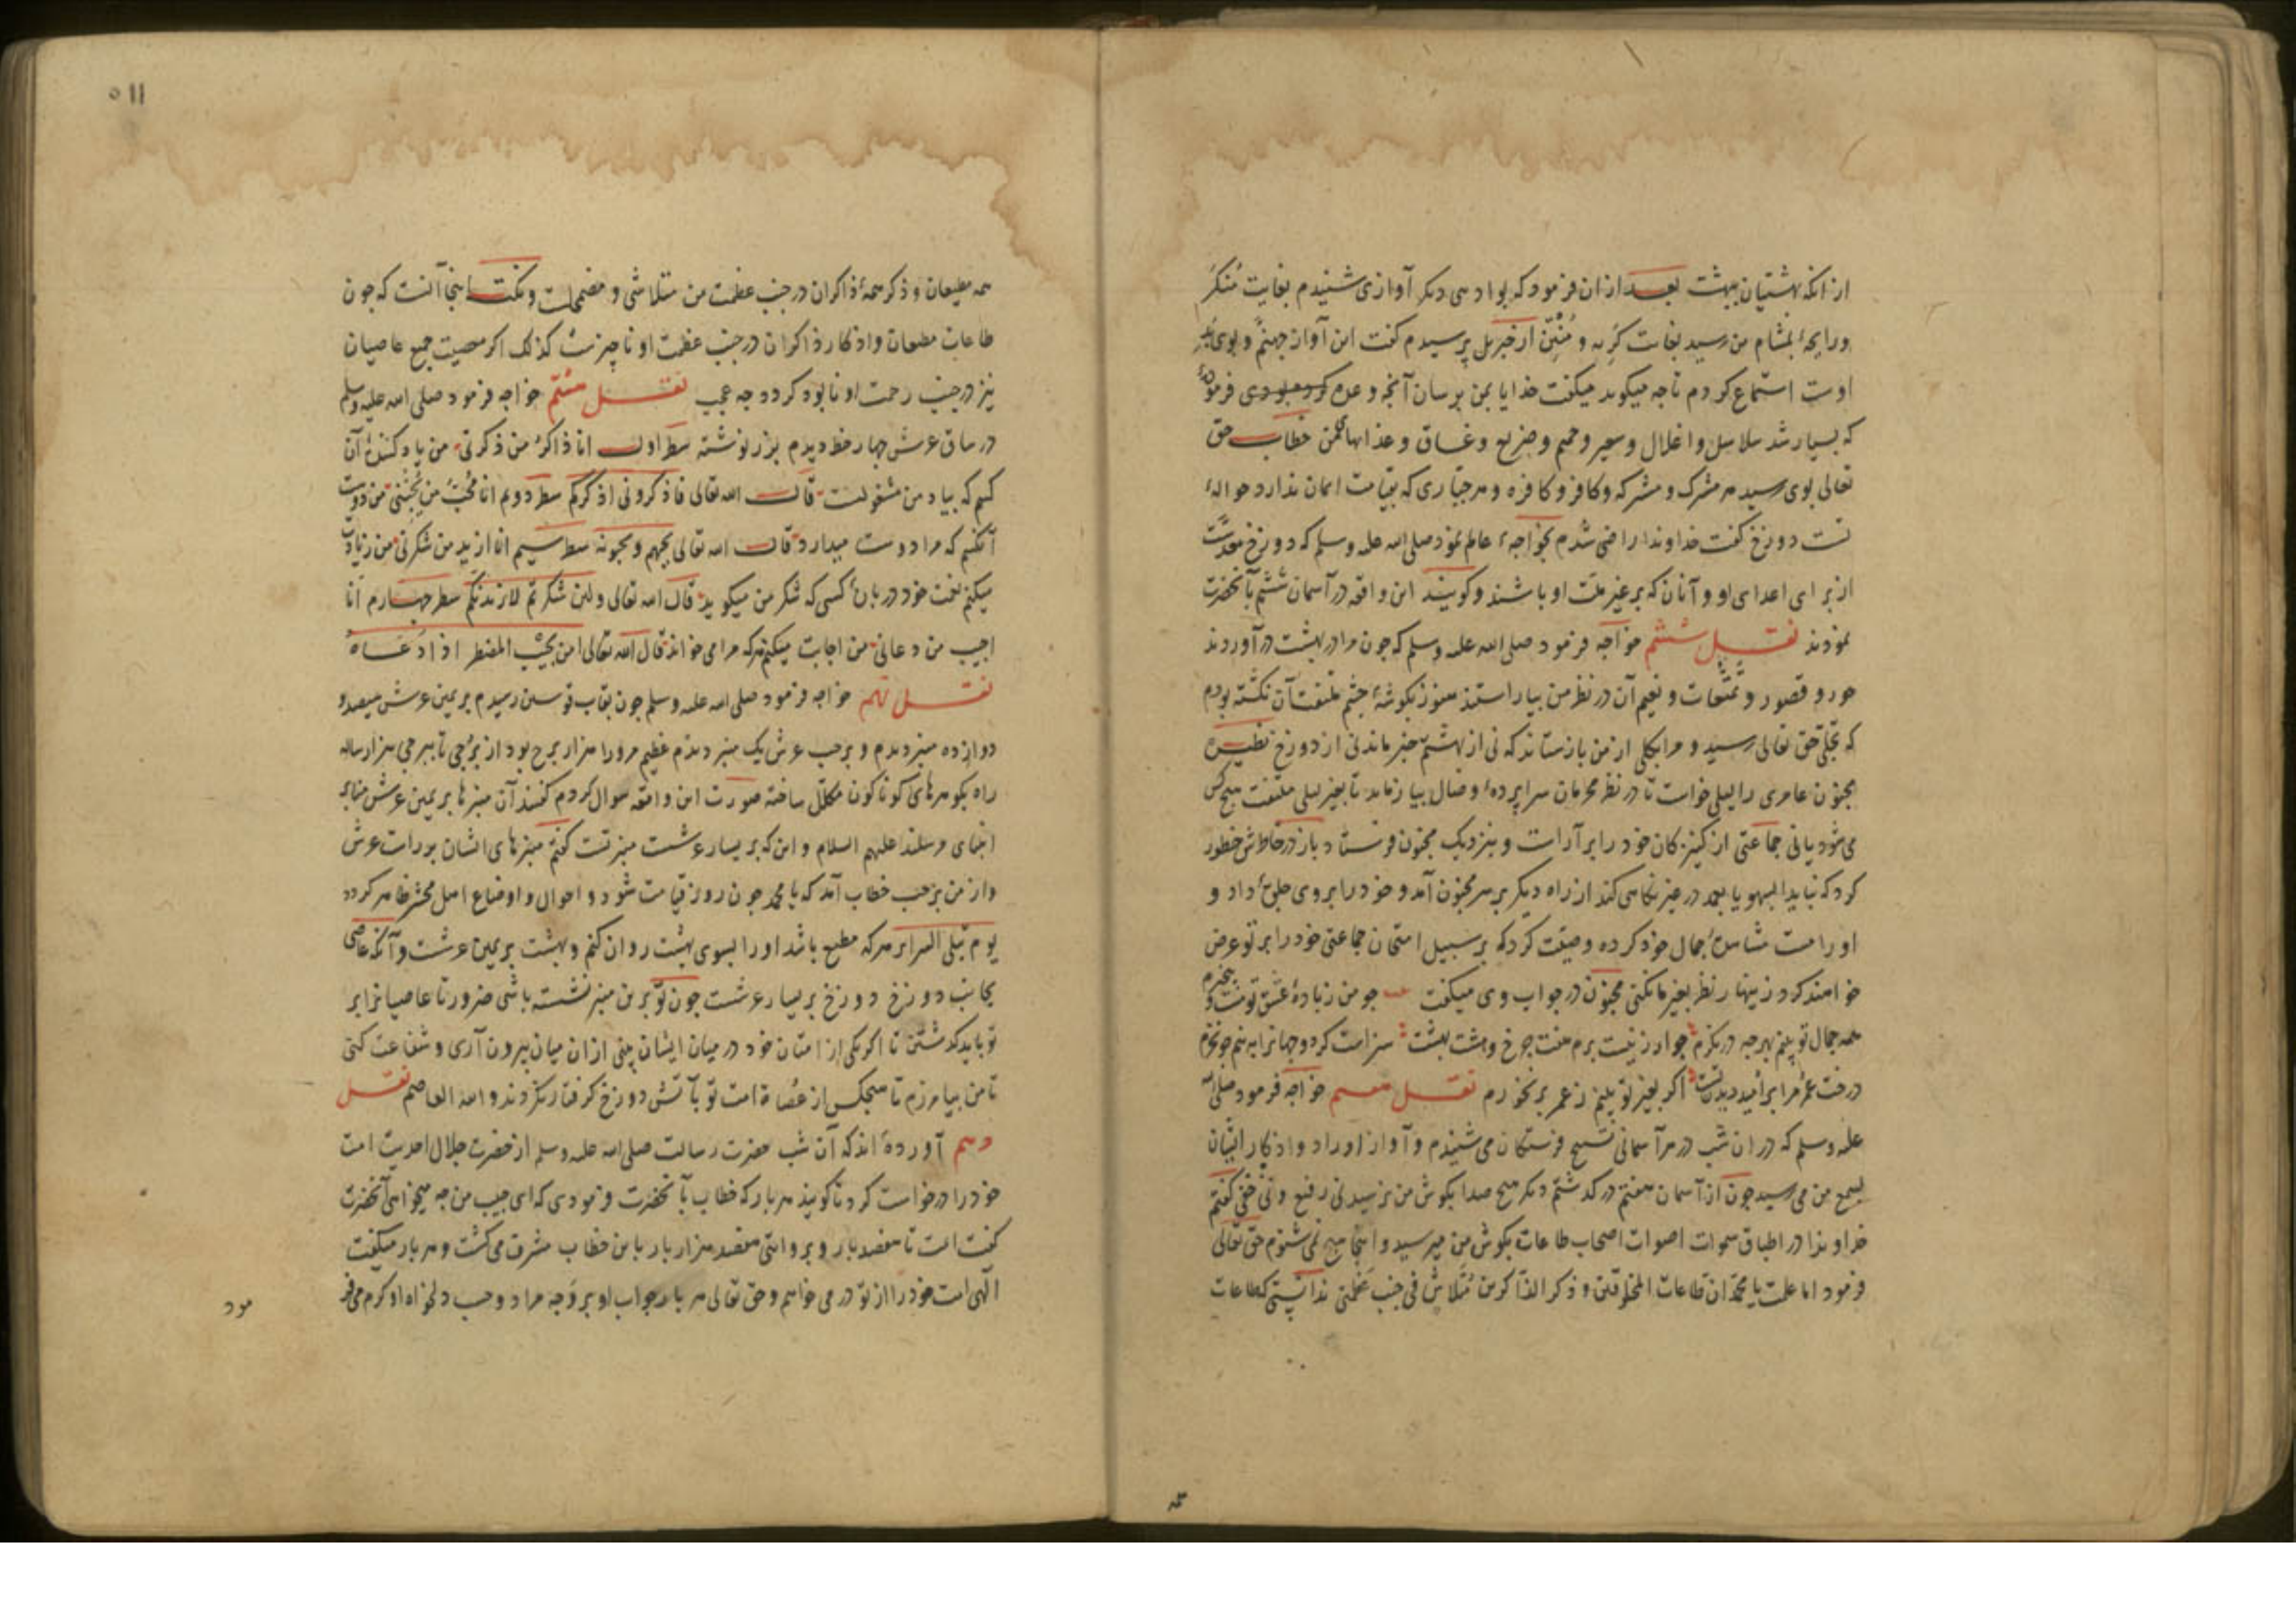 از انکه بهشتیان ببهشت بعد ازان فرمود که بوادی دیکر آوازی شنیدم بغایت مُنکَر
ورایحهٔ بمشام من رسید بغایت کریه و مُنتِن از جبریل پرسیدم کفت این آواز جهنّم و بوی
اوست استماع کردم تا چه میکوید میکفت خدایا بمن برسان آنچه وعده کرده بودی
که بسیار شد سلاسل و اغلال و سعیر و حمیم و ضریع و غساق و عذابهای من خطاب حق
تعالی بوی رسید هر مشرک و مشرکه و کافر و کافره و هر جبّاری که بقیامت ایمان ندارد حوالهٔ
تست دوزخ کفت خداوندا راضی شدم بخواجهٔ عالم نمود صلی الله علیه وسلم که دوزخ معدّست
از برای اعدای او و آنان که بر غیر ملّت او باشند و کویند این واقعه در آسمان ششم بآنحضرت
نمودند نقل ششم خواجه فرمود صلی الله علیه وسلم که چون مرا در بهشت در آوردند
حور و قصور و تمتّعات و نعیم آن در نظر من بیاراستند هنوز بکوشهٔ چشم ملتفت آن نکشته بودم
که تجلّی حق تعالی رسید و مرا بکلی از من باز ستاند که نی از بهشتم خبر ماند نی از دوزخ نظیرش
مجنون عامری را لیلی خواست تا در نظر محرمان سراپردهٔ وصال بیازماید تا بغیر لیلی ملتفت هیچ کس
می شود یا نی جماعتی از کنیزکان خود را بر آراست و بنزدیک مجنون فرستاد باز در خاطرش خطور
کرد که نباید السهو یا بعمد در غیر نکاهی کند از راه دیکر بر سر مجنون آمد و خود را بر وی جلوهٔ داد و
او را مست مشاهدهٔ جمال خود کرده وصیّت کرد که بر سبیل امتحان جماعتی خود را بر تو عرض
خواهند کرد زینهار نظر بغیر ما نکنی مجنون در جواب وی میکفت چو من ز بادهٔ عشق تو مست و بیخبرم
همه جمال تو بینم بهر چه در نکرم جوار زنیست برم هفت چرخ و هشت بهشت سزاست کر دو جهانرا به نیم جو نخرم
درخت عمر مرا بر امید دیدن تست اکر بغیر تو بینم ز عمر بر نخورم نقل هفتم خواجه فرمود صلی الله
علیه وسلم که دران شب در هر آسمانی تسبیح فرشتکان می شنیدم و آواز اوراد و اذکار ایشان
بسمع من می رسید چون از آسمان هفتم در کذشتم دیکر هیچ صدا بکوش من نرسید نی رفیع و نی خفی کفتم
خداوندا در اطباق سموات اصوات اصحاب طاعات بکوش من میرسید و اینجا هیچ نمی شنوم حق تعالی
فرمود اما علمت یا محمّد ان طاعات المخلوقین و ذکر الذاکرین مُتلاشٍ فی جنب عظمتی ندانستی که طاعات
همه
۵۱۱
همه مطیعان و ذکر همهٔ ذاکران در جنب عظمت من متلاشی و مضمحلست و نکته اینجا آنست که چون
طاعات مطیعان و اذکار ذاکران در جنب عظمت او ناچیزست کذلک اکر معصیت جمیع عاصیان
نیز در جنب رحمت او نابود کردد چه عجب نقل هشتم خواجه فرمود صلی الله علیه وسلم
در ساق عرش چهار خط دیدم بزر نوشته سطر اول انا ذاکرُ من ذکرنی من یاد کنندهٔ آن
کسم که بیاد من مشغولست قال الله تعالی فاذکرونی اذکرکم سطر دوم انا مُحبّ من یُحبّنی من دوست
آنکسم که مرا دوست میدارد قال الله تعالی یحبهم ویحبونه سطر سیم انا ازید من شکرنی من زیادت
میکنم نعمت خود در بارهٔ کسی که شکر من میکوید قال الله تعالی ولئن شکرتم لازیدنّکم سطر چهارم انا
اجیب من دعانی من اجابت میکنم هرکه مرا می خواند قال الله تعالی امن یجیب المضطر اذا دَعَاهُ
نقل نهم خواجه فرمود صلی الله علیه وسلم چون بقاب قوسین رسیدم بر یمین عرش سیصد و
دوازده منبر دیدم و بر جنب عرش یک منبر دیدم عظیم مرورا هزار برج بود از بُرجی تا ببرجی هزار ساله
راه بکوهرهای کوناکون مکلّل ساخته صورت این واقعه سوال کردم کفتند آن منبرها بر یمین عرش منابر
انبیای مرسلند علیهم السلام و این که بر یسار عرشست منبر تست کفتم منبرهای ایشان بر راست عرش
و از من بر جنب خطاب آمد که یا محمد چون روز قیامت شود و احوال و اوضاع اهل محشر ظاهر کردد
یوم تبلی السرائر هر که مطیع باشد او را بسوی بهشت روان کنم و بهشت بر یمین عرشست و آنکه عاصی
بجانب دوزخ دوزخ بر یسار عرشست چون تو برین منبر نشسته باشی ضرورتا عاصیانرا بر
تو باید کذشتن تا اکر یکی از امتان خود در میان ایشان بینی ازان میان بیرون آری و شفاعت کنی
تا من بیامرزم تا هیچکس از عُصاة امت تو بآتش دوزخ کرفتار نکردند والله العاصم نقل
دهم آوردهٔ اند که آن شب حضرت رسالت صلی الله علیه وسلم از حضرت جلال احدیت امت
خود را درخواست کرد تا کویند هر بار که خطاب بآنحضرت فرمودی که ای حبیب من چه میخواهی آنحضرت
کفت امت تا هفصد بار و بروایتی هفصد هزار بار باین خطاب مشرف می کشت و هر بار میکفت
الهی امت خود را از تو در می خواهم و حق تعالی هر بار جواب او بر وَجه مراد و حسب دلخواه او کرم می فر
مود